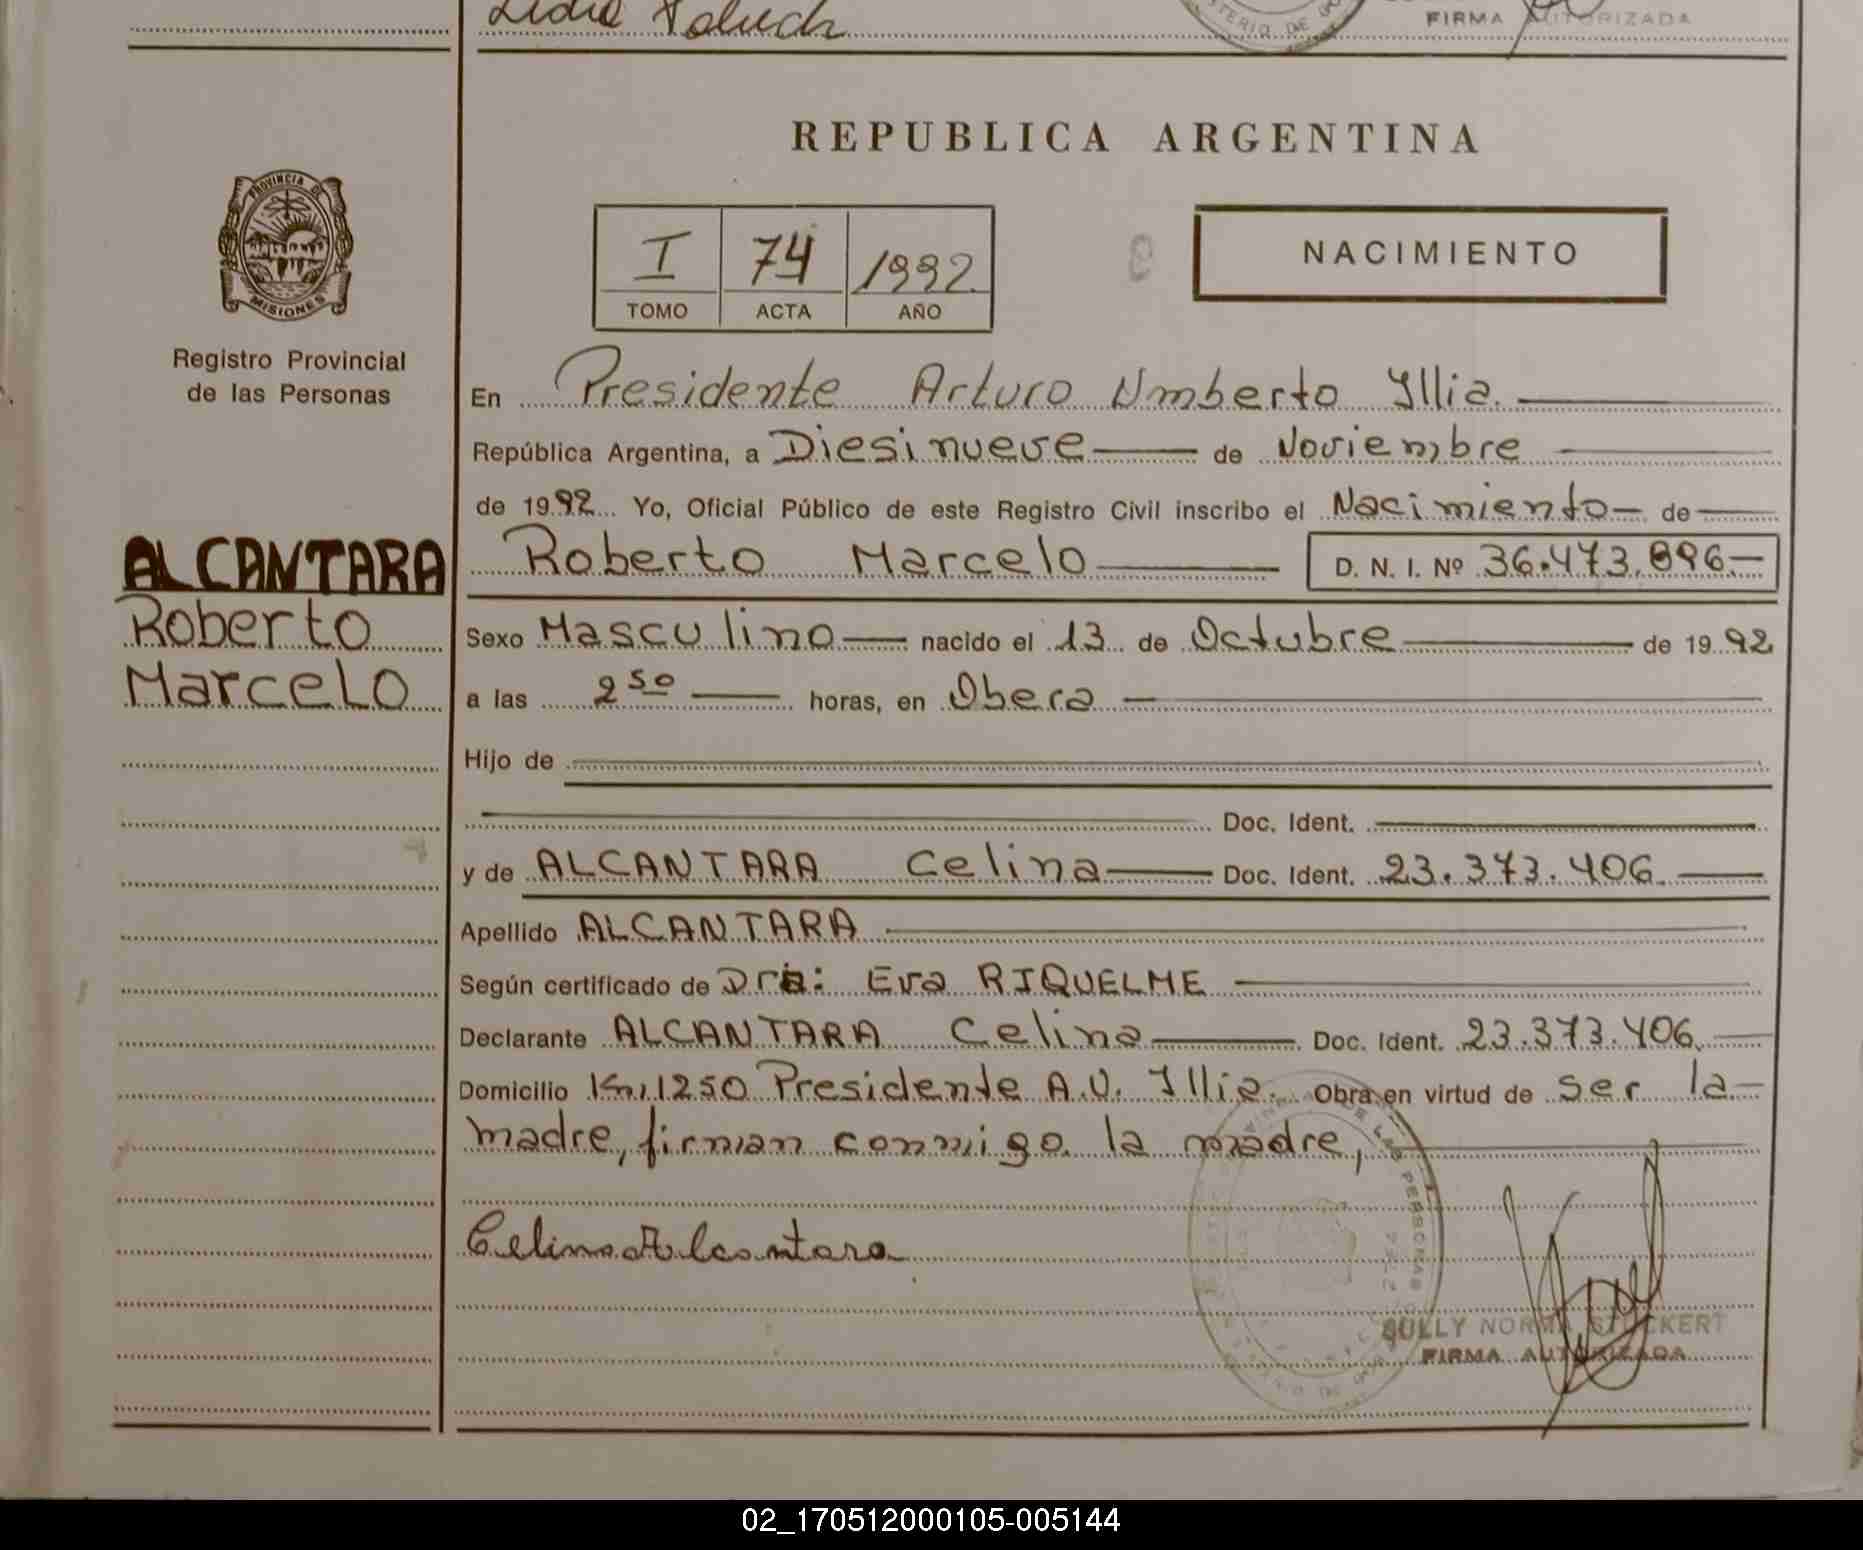 Lidia
MINISTERIO DE GO
FIRMA AUTORIZADA
REPUBLICA ARGENTINA
PROVINCIA DE
MISIONES
Registro Provincial
de las Personas
I 74 1992
TOMO ACTA AÑO
NACIMIENTO
ALCANTARA
Roberto
Marcelo
En Presidente Arturo Umberto Illia.
República Argentina, a Diesinueve de Noviembre
de 1992 Yo, Oficial Público de este Registro Civil inscribo el Nacimiento de
Roberto Marcelo D. N. I. Nº 36.473.896.
Sexo Masculino nacido el 13 de Octubre de 1992
a las 2 50 horas, en Obera
Hijo de
Doc. Ident.
y de ALCANTARA Celina Doc. Ident. 23.373.406.
Apellido ALCANTARA
Según certificado de Dra: Eva RIQUELME
Declarante ALCANTARA Celina Doc. Ident. 23.373.406.
Domicilio Km 1250 Presidente A.U. Illia. Obra en virtud de ser la
madre, firman conmigo la madre,
Celina Alcantara
SULLY NORMA STOCKERT
FIRMA AUTORIZADA
02_170512000105-005144